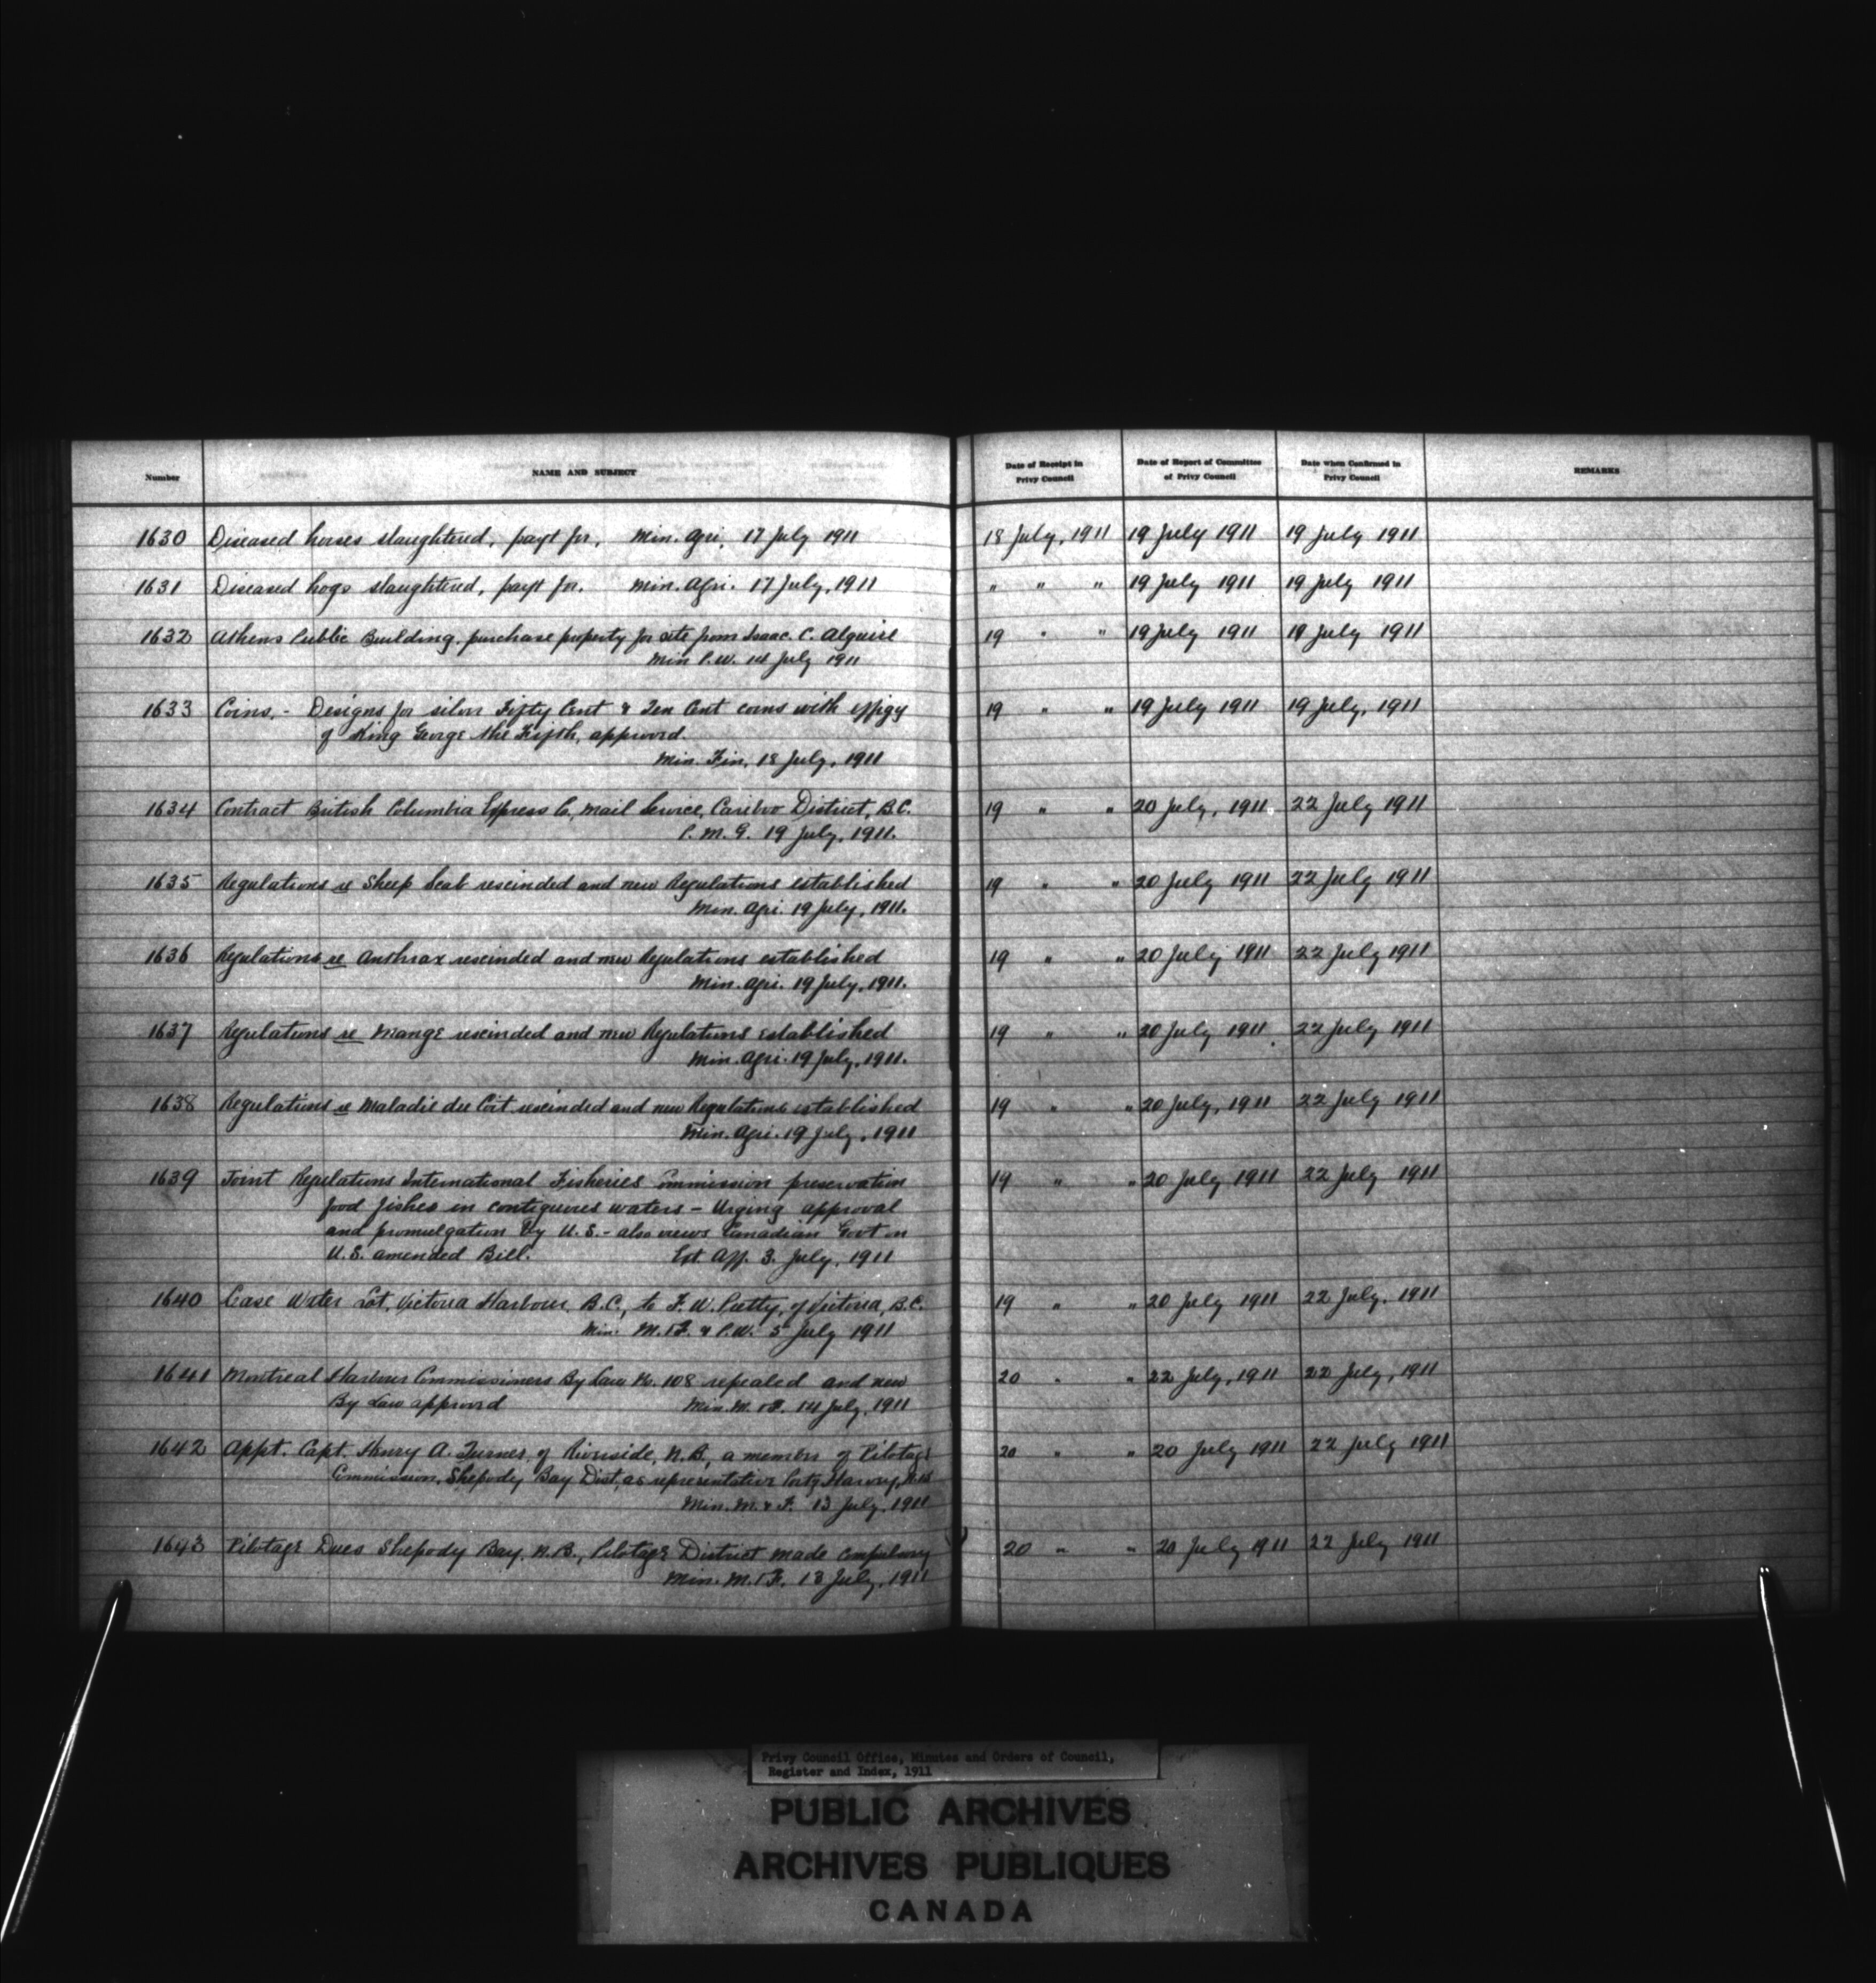 Number NAME AND SUBJECT Date of Receipt in Privy Council Date of Report of Committee of Privy Council Date when Confirmed in Privy Council REMARKS
1630 Diseased horses slaughtered, payt for, Min. Agri. 17 July 1911 18 July, 1911 19 July 1911 19 July 1911
1631 Diseased hogs slaughtered, payt for. Min. Agri. 17 July, 1911 " " " 19 July 1911 19 July 1911
1632 Athens Public Building, purchase property for site from Isaac. C. Alguire 19 " " 19 July 1911 19 July 1911
Min P.W. 14 July 1911
1633 Coins. - Designs for silver Fifty Cent & Ten Cent coins with effigy 19 " " 19 July 1911 19 July, 1911
of King George the Fifth, approved.
Min. Fin. 18 July, 1911
1634 Contract British Columbia Express Co., Mail Service, Cariboo District, B.C. 19 " " 20 July, 1911 22 July 1911
P. M. G. 19 July, 1911.
1635 Regulations re Sheep Scab rescinded and new Regulations established 19 " " 20 July 1911 22 July 1911
Min. Agri. 19 July, 1911.
1636 Regulations re Anthrax rescinded and new Regulations established 19 " " 20 July 1911 22 July 1911
Min. Agri. 19 July, 1911.
1637 Regulations re Mange rescinded and new Regulations established 19 " " 20 July 1911 22 July 1911
Min. Agri. 19 July, 1911.
1638 Regulations re Maladie du Coit rescinded and new Regulations established 19 " " 20 July, 1911 22 July 1911
Min. Agri. 19 July, 1911
1639 Joint Regulations International Fisheries Commission preservation 19 " " 20 July 1911 22 July 1911
food fishes in contiguous waters - Urging approval
and promulgation by U.S. - also views Canadian Govt on
U.S. amended Bill. Ext. Aff. 3. July, 1911
1640 Lease Water Lot, Victoria Harbour, B.C., to F. W. of Victoria, B.C. 19 " " 20 July 1911 22 July. 1911
Min. M. & F. & P.W. 5 July 1911
1641 Montreal Harbour Commissioners By Law No. 108 repealed and new 20 " " 22 July, 1911 22 July, 1911
By Law approved Min. M. & F. 14 July, 1911
1642 Appt. Capt. Henry A. Turner, of Riverside, N.B., a member of Pilotage 20 " " 20 July 1911 22 July 1911
Commission, Shepody Bay Dist, as representative Harvey, N.B.
Min. M. & F. 13 July, 1911
1643 Pilotage Dues Shepody Bay, N.B., Pilotage District made compulsory 20 " " 20 July 1911 22 July 1911
Min. M. & F. 13 July, 1911
Privy Council Office, Minutes and Orders of Council,
Register and Index, 1911
PUBLIC ARCHIVES
ARCHIVES PUBLIQUES
CANADA